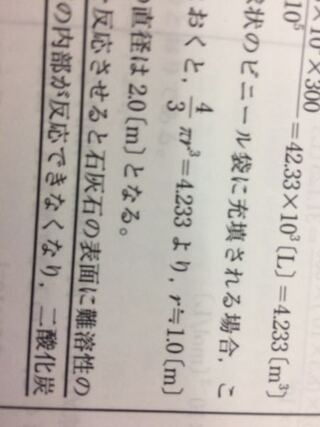 ×300/10⁵=42.33×10³〔L〕=4.233〔m³〕
状のビニール袋に充填される場合，こ
おくと，4/3πr³=4.233 より，r≒1.0〔m〕
直径は 2.0〔m〕となる。
反応させると石灰石の表面に難溶性の
の内部が反応できなくなり，二酸化炭